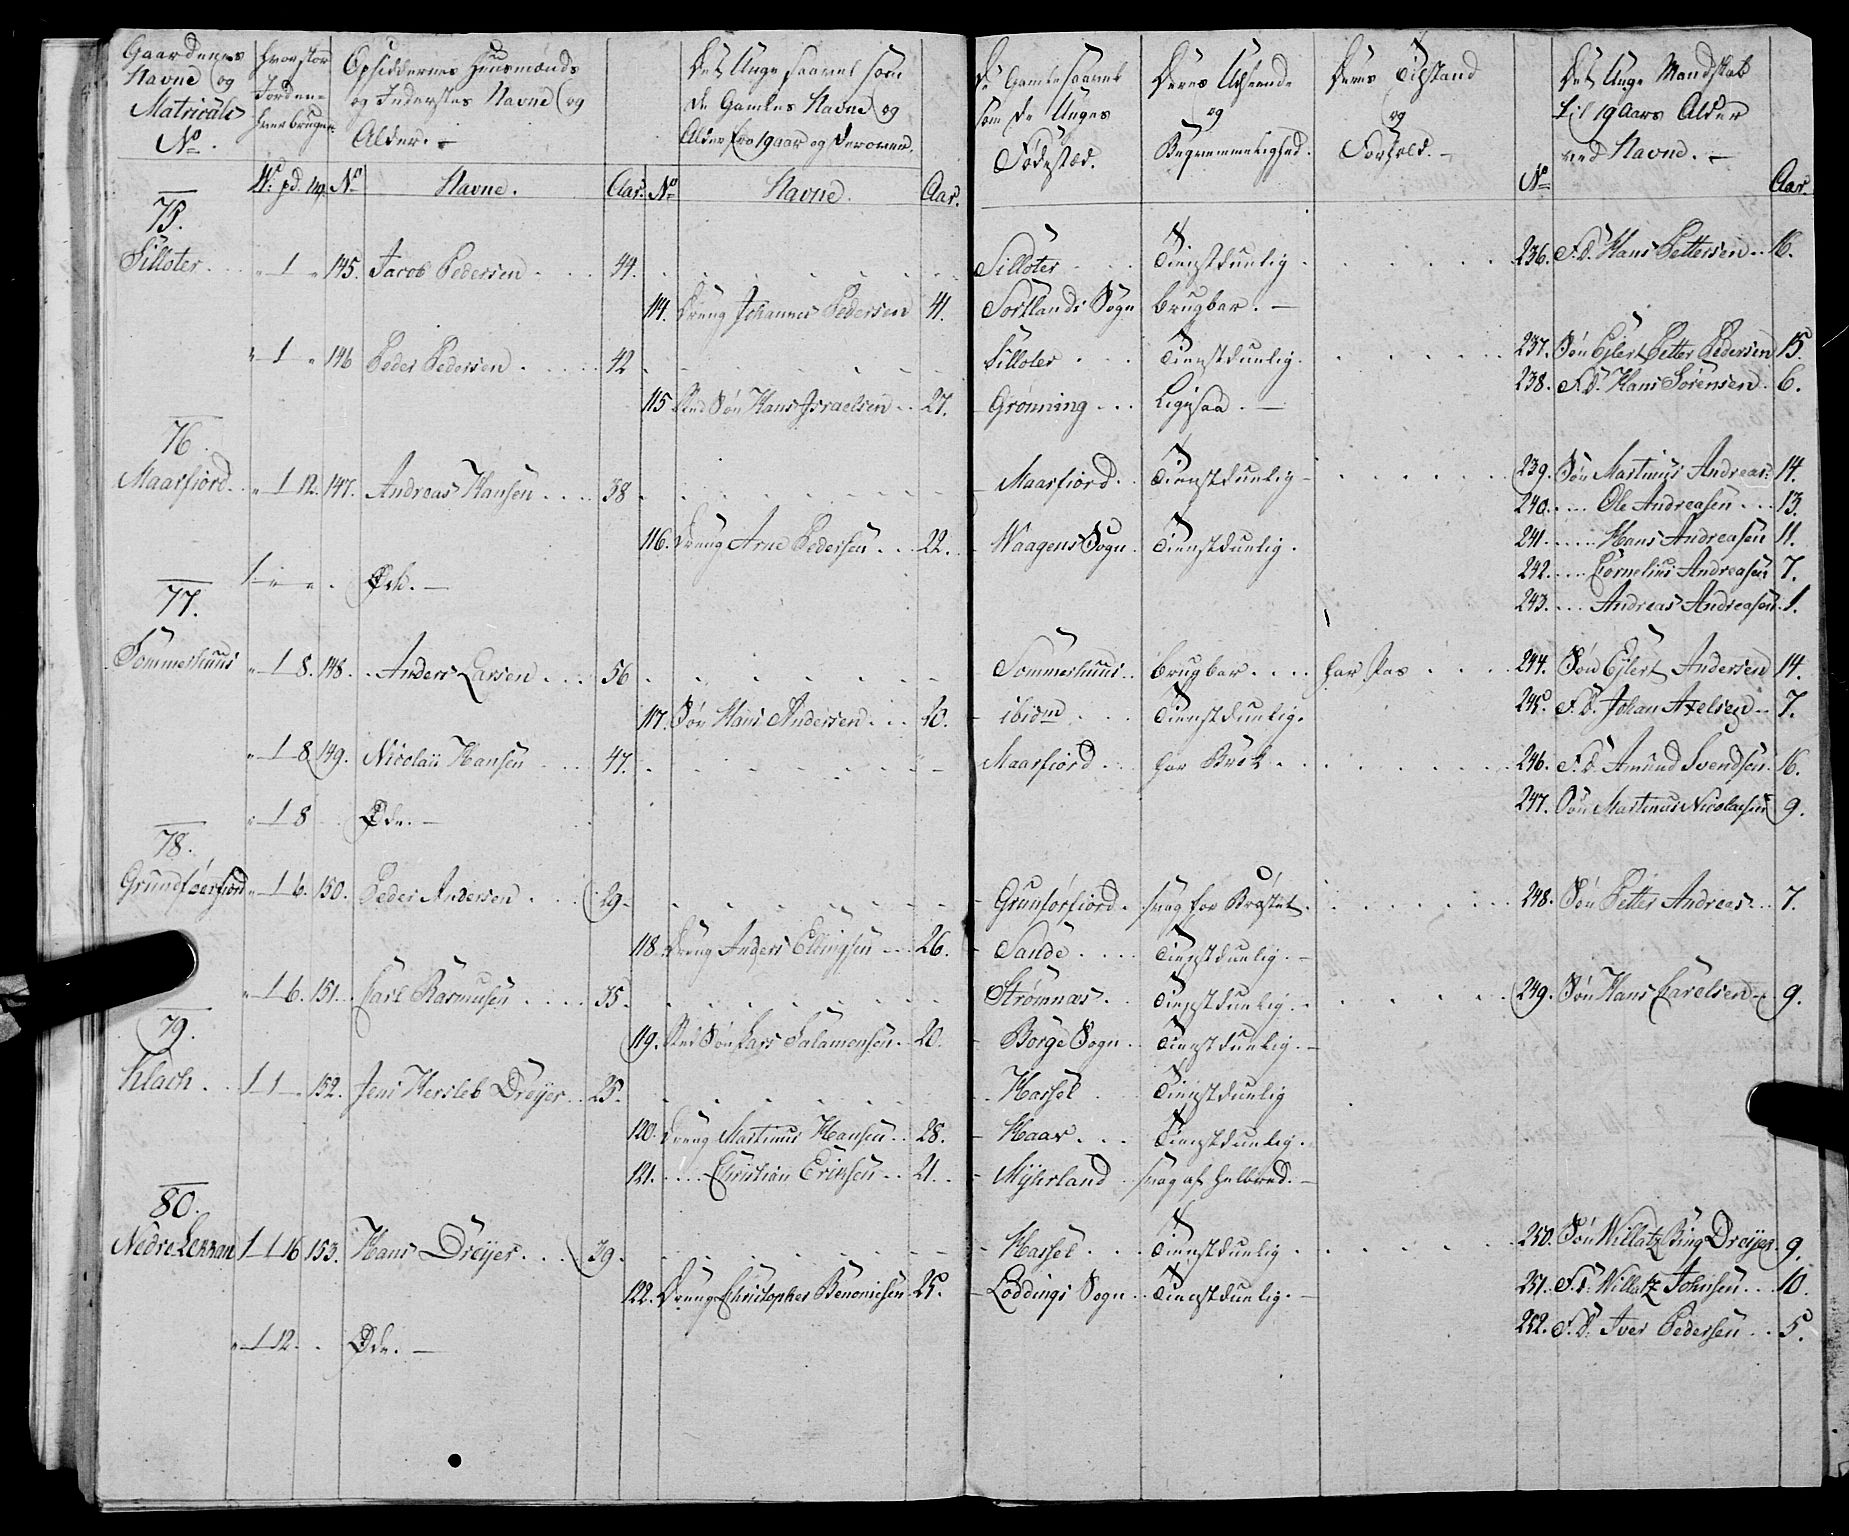 Gaardenes Navne og Matriculs No.
hvor stor Jorden hver bruger
Opsiddernes Huusmænds og Inderstes Navne og Alder.
Det Unge saavel som de Gamles Navne og Alder fra 19 aar og derover.
De Gamle saavel som de Unges Fødested.
Deres Udseende og Beqvemmelighed.
Deres Tilstand og Forhold.
Det Unge Mandskab til 19 Aars Alder ved Navne.
W: pd. No Navne. Aar. No Navne. Aar. No Aar.
75.
Silloter 1 145. Jacob Pedersen 44. Silloter Tienstdunlig 236. F.d. Hans Pettersen 16.
114. Dreng Johannes Pedersen 41. Sortlands Sogn brugbar.
1 146 Peder Pedersen 42 Silloter Tienstdunlig 237. Søn Ejlert Petter Pedersen 15.
238. F.d. Hans Sørensen 6.
115 Søn Hans Israelsen 27. Grønning Ligesaa.
76.
Maarfiord 1 12. 147. Andreas Hansen 38 Maarfiord Tienstdunlig 239. Søn Martinus Andreas: 14.
240. Ole Andreasen 13.
116. Dreng Arne Pedersen 22. Waagens Sogn Tienstdunlig. 241. Hans Andreasen 11.
1 Øde. 242. Cornelius Andreasen 7.
77. 243. Andreas Andreasen 1.
Sommerhuus 1 8. 148. Anders Larsen 56 Sommerhuus brugbar har Pas 244. Søn Ejlert Andersen 14.
117. Søn Hans Andersen 20. ibidm Tienstdunlig. 245. F.d. Johan Axelsen 7.
1 8 149. Nicolai Hansen 47. Maarfiord har Brok 246. F.d. Amund Svendsen 16.
247. Søn Martinus Nicolaisen 9.
1 8 Øde.
78.
Grundførfiord 1 6. 150. Peder Andersen 29. Grunførfiord svag for Brøstet. 248. Søn Petter Andreas 7.
118. Dreng Anders Ellingsen 26. Sande Tienstdunlig.
1 6. 151. Carl Rasmusen 35. Strømnæs Tienstdunlig 249. Søn Hans Carelsen 9.
79.
119. Søn Lars Salamonsen 20. Borge Sogn Tienstdunlig.
Klach 1 1 152. Jens Hersleb Dreyer 25. Hassel Tienstdunlig
120. Dreng Martinus Hansen 28. Haar Tienstdunlig.
121. Christian Eriksen 21. Myhrland svag af Helbred.
80.
Nedre Lekran 1 1 16 153. Hans Dreyer 29. Hassel Tienstdunlig 250. Søn Willatz Bing Dreyer 9.
122. Dreng Christopher Benonisen 25. Loddings Sogn Tienstdunlig. 251. F.d. Willatz Johnsen 10.
252. F.d. Iver Pedersen 5.
1 12. Øde.